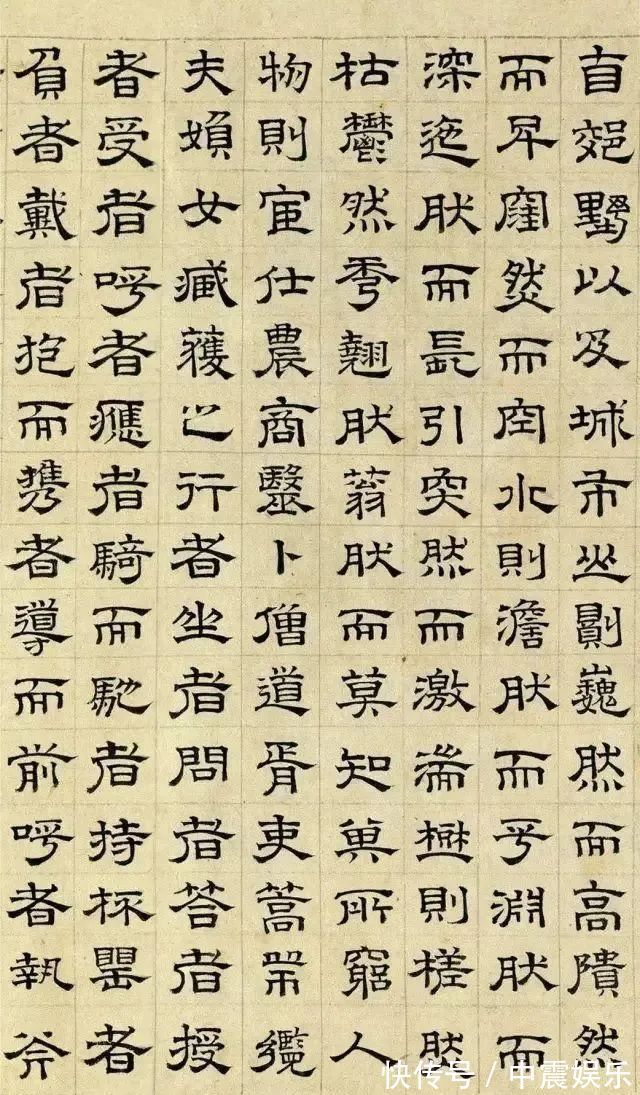 自郊野以及城市山則巍然而高隤然
而卑窪然而空水則澹然而平淵然而
深迤然而長引突然而激湍樹則槎然
枯鬱然秀翹然蓊然而莫知其所窮人
物則官仕農商醫卜僧道胥吏篙師纜
夫婦女臧獲之行者坐者問者答者授
者受者呼者應者騎而馳者持杯罌者
負者戴者抱而攜者導而前呼者執斧
快传号／中震娱乐